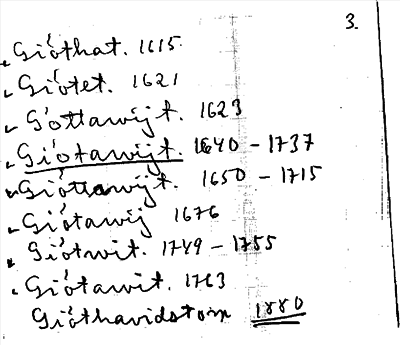 3.
Gióthat. 1615
Giótet. 1621
Góttawijt. 1623
Giótawijt. 1640 - 1737
Gióttawijt. 1650 - 1715
Giótawij 1676
Giótwit. 1749 - 1755
Giótawit. 1763
Gióthavidstorp 1880